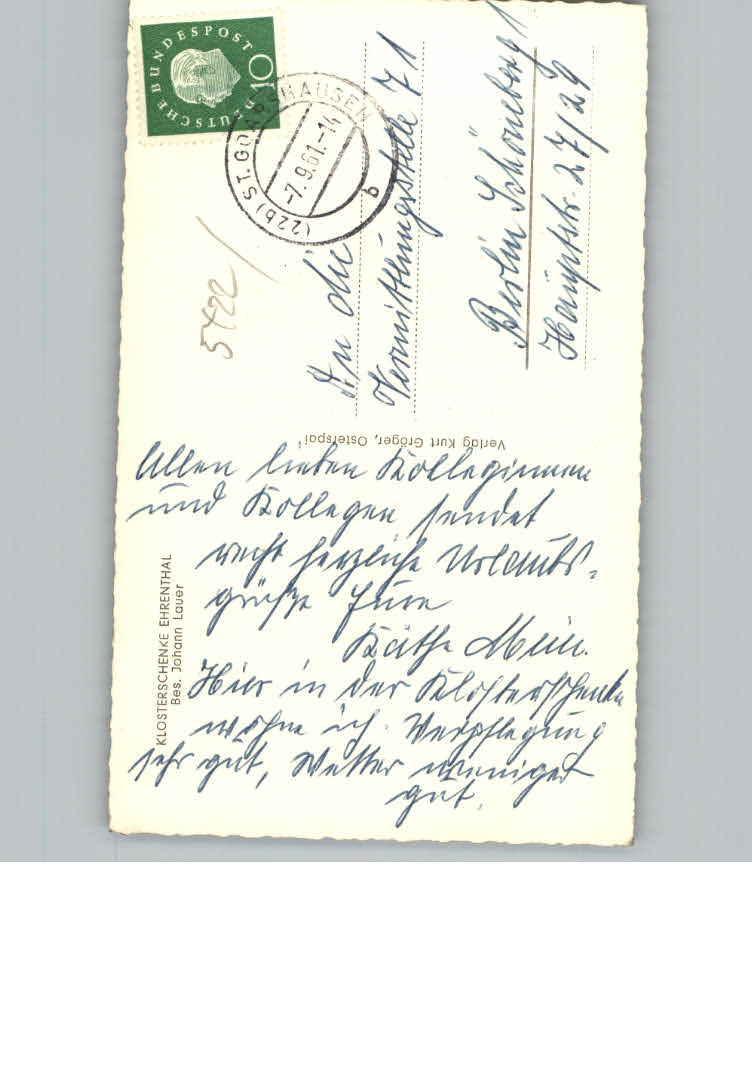 DEUTSCHE BUNDESPOST
10
(22b) ST. GOARSHAUSEN
-7.9.61.-14
b
5422
An die
Vermittlungsstelle 71
Berlin Schöneberg 1
Hauptstr. 27/29
Verlag Kurt Gröger, Osterspai
Allen lieben Kolleginnen
und Kollegen sendet
recht herzliche Urlaubs-
grüße Eure
Käthe
Hier in der Klosterschenke
wohne ich. Verpflegung
sehr gut, Wetter weniger
gut.
KLOSTERSCHENKE EHRENTHAL
Bes. Johann Lauer